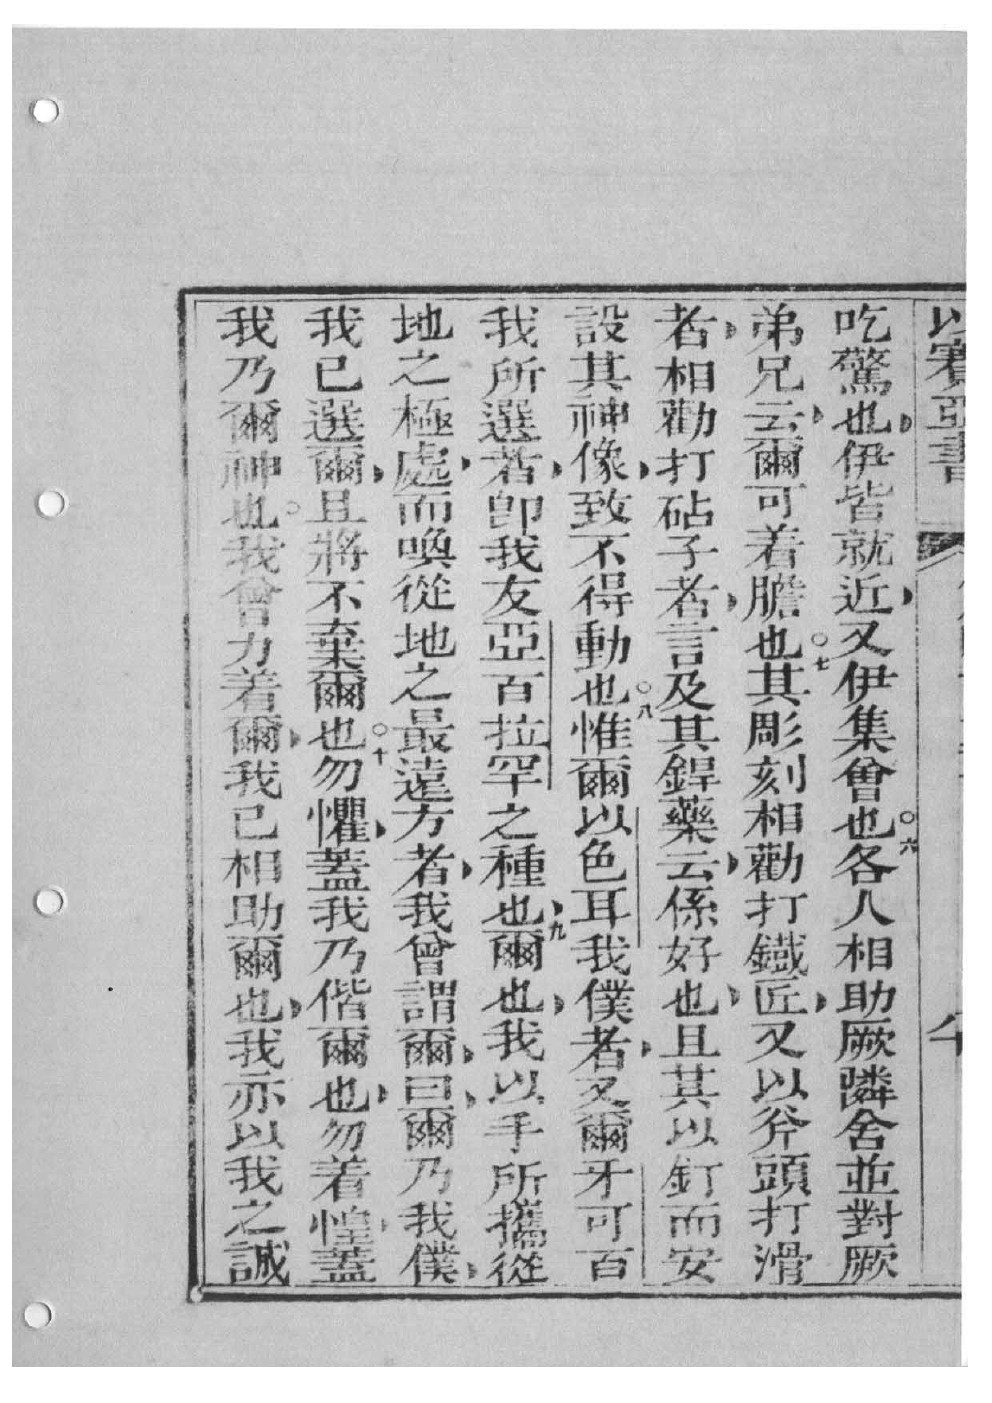 以賽亞書
吃驚也伊皆就近又伊集會也○六各人相助厥隣舍並對厥
弟兄云爾可着膽也○七其彫刻相勸打鐵匠又以斧頭打滑
者相勸打砧子者言及其銲藥云係好也且其以釘而安
設其神像致不得動也○八惟爾以色耳我僕者又爾牙可百
我所選者卽我友亞百拉罕之種也九爾也我以手所攜從
地之極處而喚從地之最遠方者我曾謂爾曰爾乃我僕
我已選爾且將不棄爾也○十勿懼蓋我乃偕爾也勿着惶蓋
我乃爾神也○我曾力着爾我已相助爾也我亦以我之誠